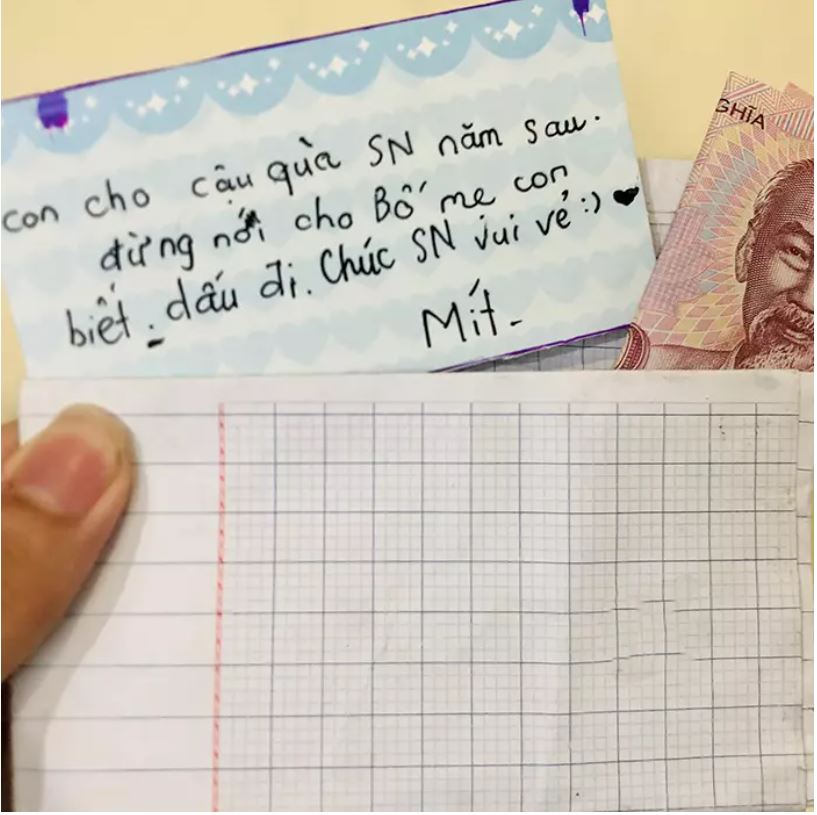 GHĨA
con cho cậu quà SN năm sau.
đừng nói cho Bố mẹ con
biết. dấu đi. Chúc SN vui vẻ :) ♥
Mít-